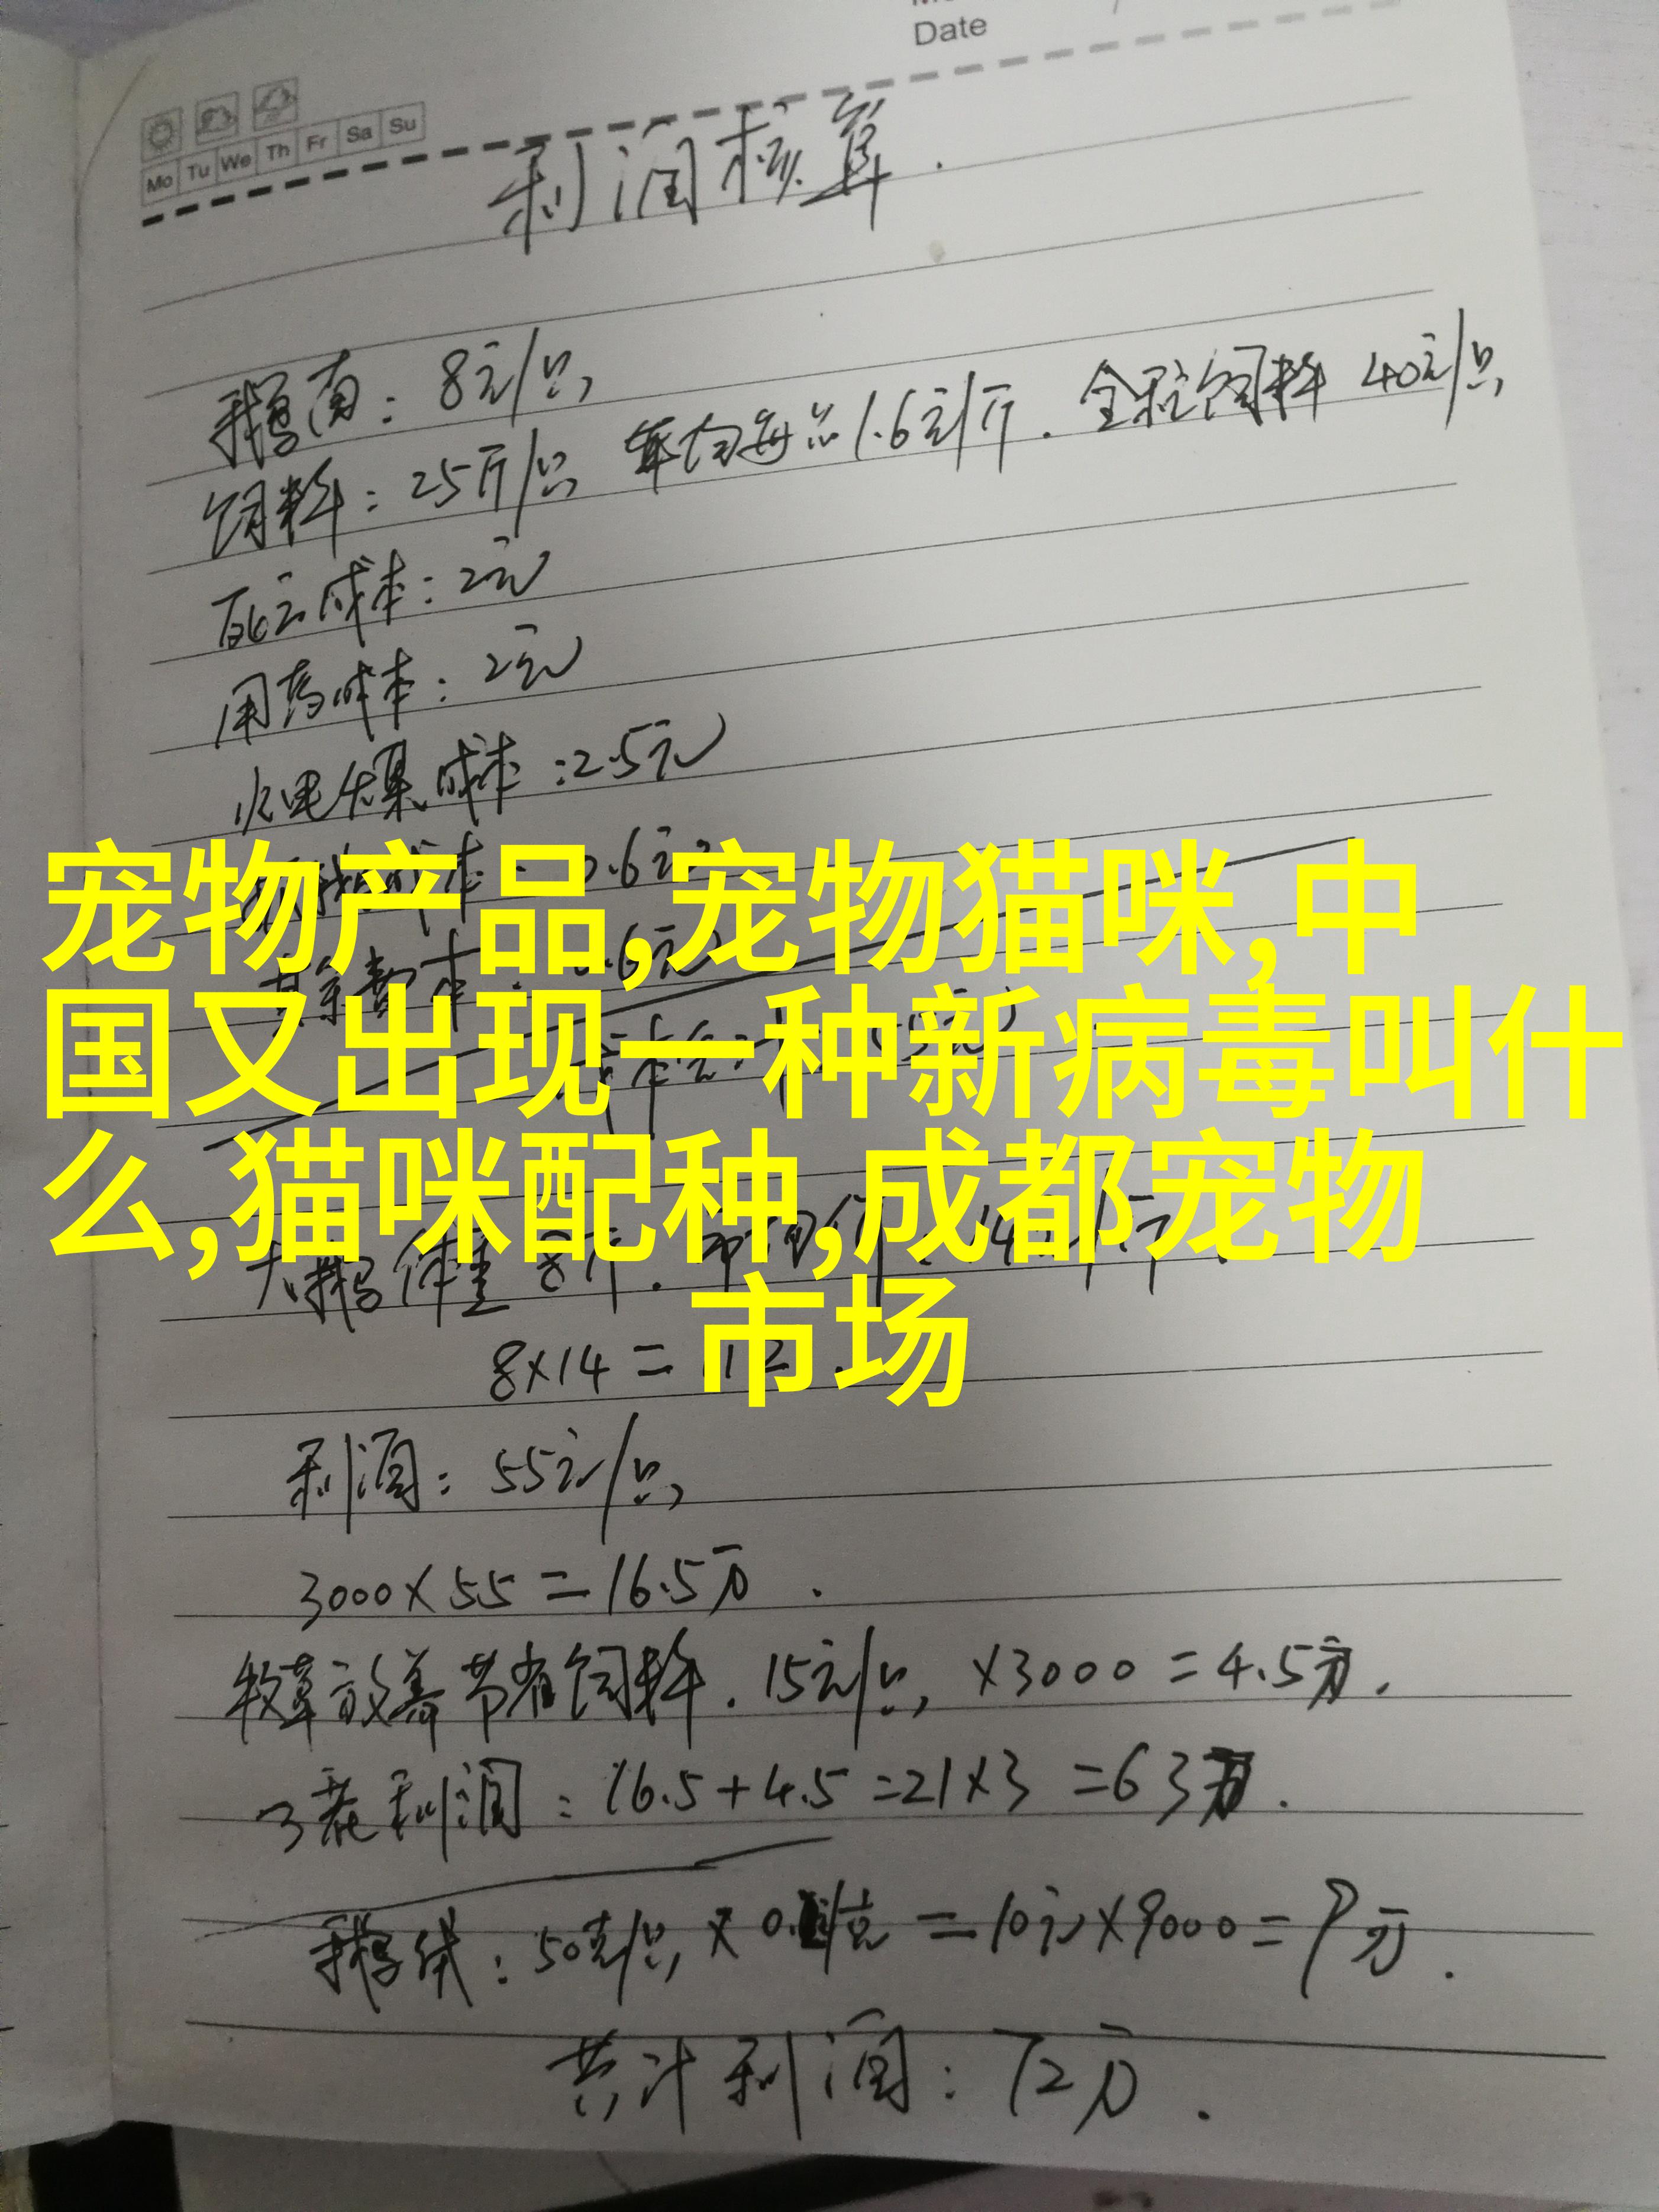 Date
Mo Tu We Th Fr Sa Su
利润核算.
鹅苗：8元/只
饲料：25斤/只 平均每斤1.6元/斤. 全程饲料 40元/只
死亡成本：2元
用药成本：2元
水电煤成本：2.5元
0.6元
宠物产品,宠物猫咪,中
国又出现一种新病毒叫什
么,猫咪配种,成都宠物
市场
大鹅体重 8斤. 14元/斤
8×14=112.
利润：55元/只
3000×55=16.5万.
牧草放养节省饲料. 15元/只, ×3000=4.5万.
3茬利润：16.5+4.5=21×3=63万.
鹅绒：50克/只 × 0. /克 = 10元×9000=9万.
共计利润：72万.